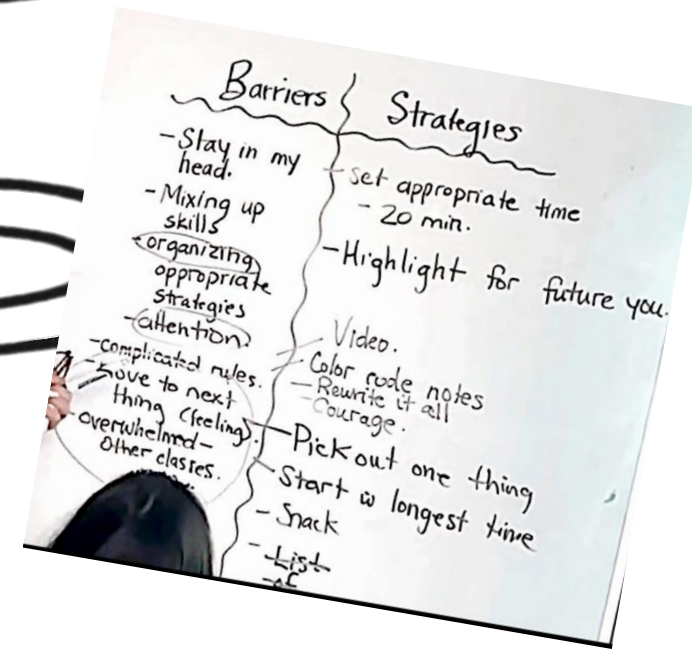 Barriers
- Stay in my
head.
- Mixing up
skills
- organizing
oppropriate
strategies
- attention.
- complicated rules.
- move to next
thing (feeling).
- overwhelmed -
other classes.
Strategies
- Set appropriate time
- 20 min.
- Highlight for future you.
Video.
Color code notes
- Rewrite it all
- Courage.
- Pick out one thing
- Start w longest time
- Snack
- List
of